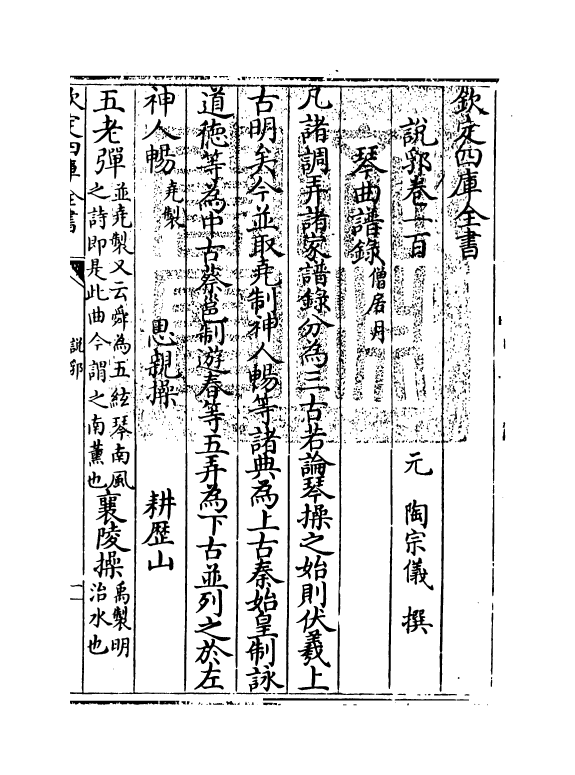 欽定四庫全書
說郛卷一百
元 陶宗儀 撰
琴曲譜錄僧居月
凡諸調弄諸家譜錄分為三古若論琴操之始則伏羲上
古明矣今並取堯制神人暢等諸典為上古秦始皇制詠
道德等為中古蔡邕制遊春等五弄為下古並列之於左
神人暢堯製 思親操 耕歷山
五老彈並堯製又云舜為五絃琴南風之詩即是此曲今謂之南薰也襄陵操禹製明治水也
欽定四庫全書 說郛 一